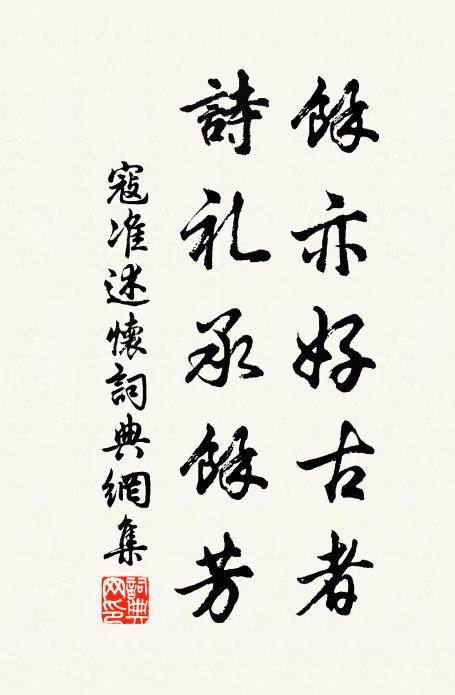 餘亦好古者
詩礼承餘芳
寇准述懷詞典網集
詞典网印